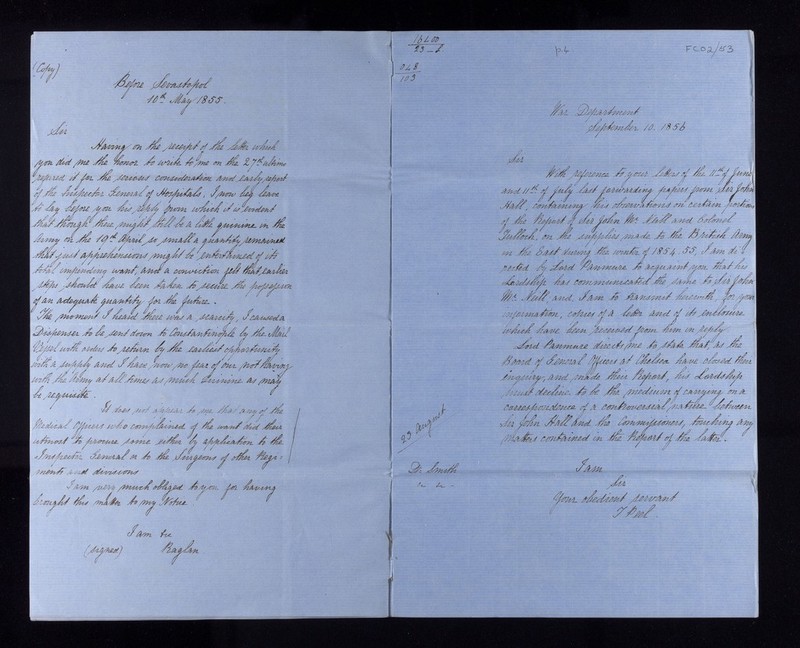 (Copy)
Before Sevastopol
10th May 1855.
Sir
Having on the receipt of the letter which
you did me the honor to write to me on the 27th ultimo
referred it for the serious consideration and early report
of the Inspector General of Hospitals, I now beg leave
to lay before you his reply from which it is evident
that though there might still be a little quinine in the
Army on the 19th April so small a quantity remained
that just apprehensions might be entertained of its
total impending want, and a conviction felt that earlier
steps should have been taken to secure the possession
of an adequate quantity for the future.
The moment I heard there was a scarcity, I caused a
Dispenser to be sent down to Constantinople by the Mail
Vessel with orders to return by the earliest opportunity
with a supply and I have now no fear of our not having
with the Army at all times as much Quinine as may
be requisite.
It does not appear to me that any of the
Medical Officers who complained of the want did their
utmost to procure some either by application to the
Inspector General or to the Surgeons of other Regi-
ments and divisions
I am very much obliged to you for having
brought this matter to my Notice
I am &c
(signed) Raglan
1600
23
048
103
p.6
FCO2/53
War Department
September 10. 1856
Sir
With reference to your letters of the 11th of June
and 11th of July last forwarding papers from Sir John
Hall, containing his observations on certain portions
of the Report of Sir John Mc Neill and Colonel
Tulloch, on the supplies made to the British Army
in the East during the winter of 1854.55, I am di-
rected by Lord Panmure to acquaint you that his
Lordship has communicated the same to Sir John
Mc Neill, and I am to transmit herewith, for your
information, copies of a letter and of its enclosure
which have been received from him in reply
Lord Panmure directs me to state that, as the
Board of General Officers at Chelsea have closed their
inquiry, and made their Report, his Lordship
must decline to be the medium of carrying on a
correspondence of a controversial nature between
Sir John Hall and the Commissioners, touching any
matters contained in the Report of the latter.
23 August
Dr. Smith
I am
Sir
Your obedient servant
J Peel